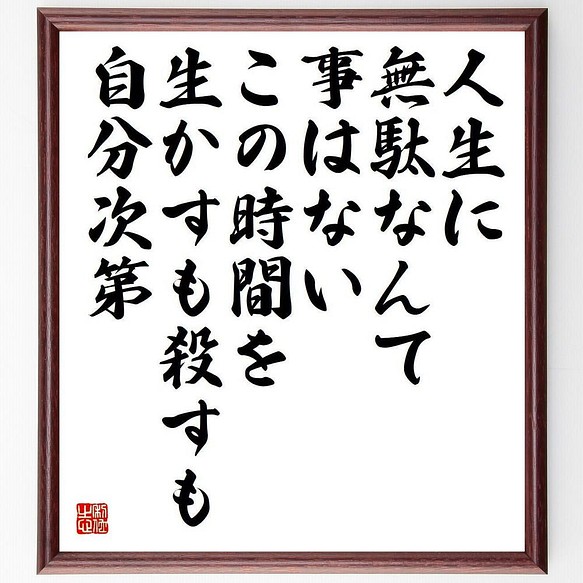 人生に
無駄なんて
事はない
この時間を
生かすも殺すも
自分次第